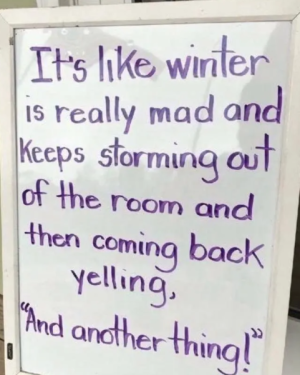 It's like winter
is really mad and
Keeps storming out
of the room and
then coming back
yelling,
"And another thing!"